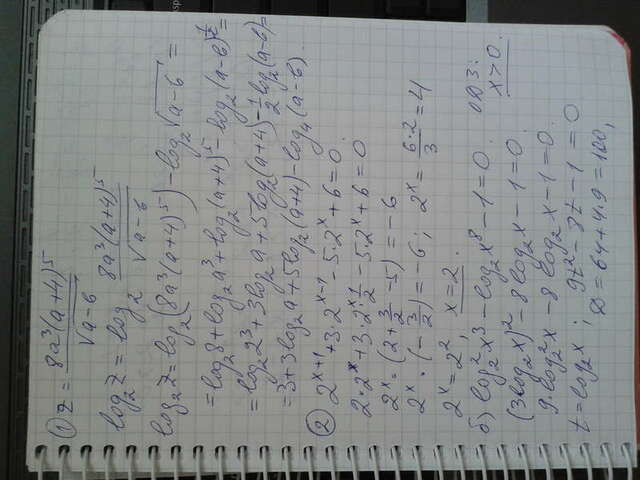 ① z = 8a³(a+4)⁵ / √a-b
log₂ z = log₂ 8a³(a+4)⁵ / √a-b
log₂ z = log₂(8a³(a+4)⁵) - log₂ √a-b =
= log₂ 8 + log₂ a³ + log₂(a+4)⁵ - log₂(a-b)^½ =
= log₂ 2³ + 3log₂ a + 5log₂(a+4) - ½ log₂(a-b) =
= 3 + 3log₂ a + 5log₂(a+4) - log₄(a-b).
② 2^(x+1) + 3·2^(x-1) - 5·2^x + 6 = 0.
2·2^x + 3·2^x·½ - 5·2^x + 6 = 0
2^x·(2 + 3/2 - 5) = -6
2^x·(-3/2) = -6; 2^x = 6·2/3 = 4
2^x = 2², x = 2.
б) log₂² x³ - log₂ x⁸ - 1 = 0. ОДЗ:
(3log₂ x)² - 8log₂ x - 1 = 0. x > 0.
9·log₂² x - 8log₂ x - 1 = 0.
t = log₂ x; 9t² - 8t - 1 = 0
D = 64 + 4·9 = 100,